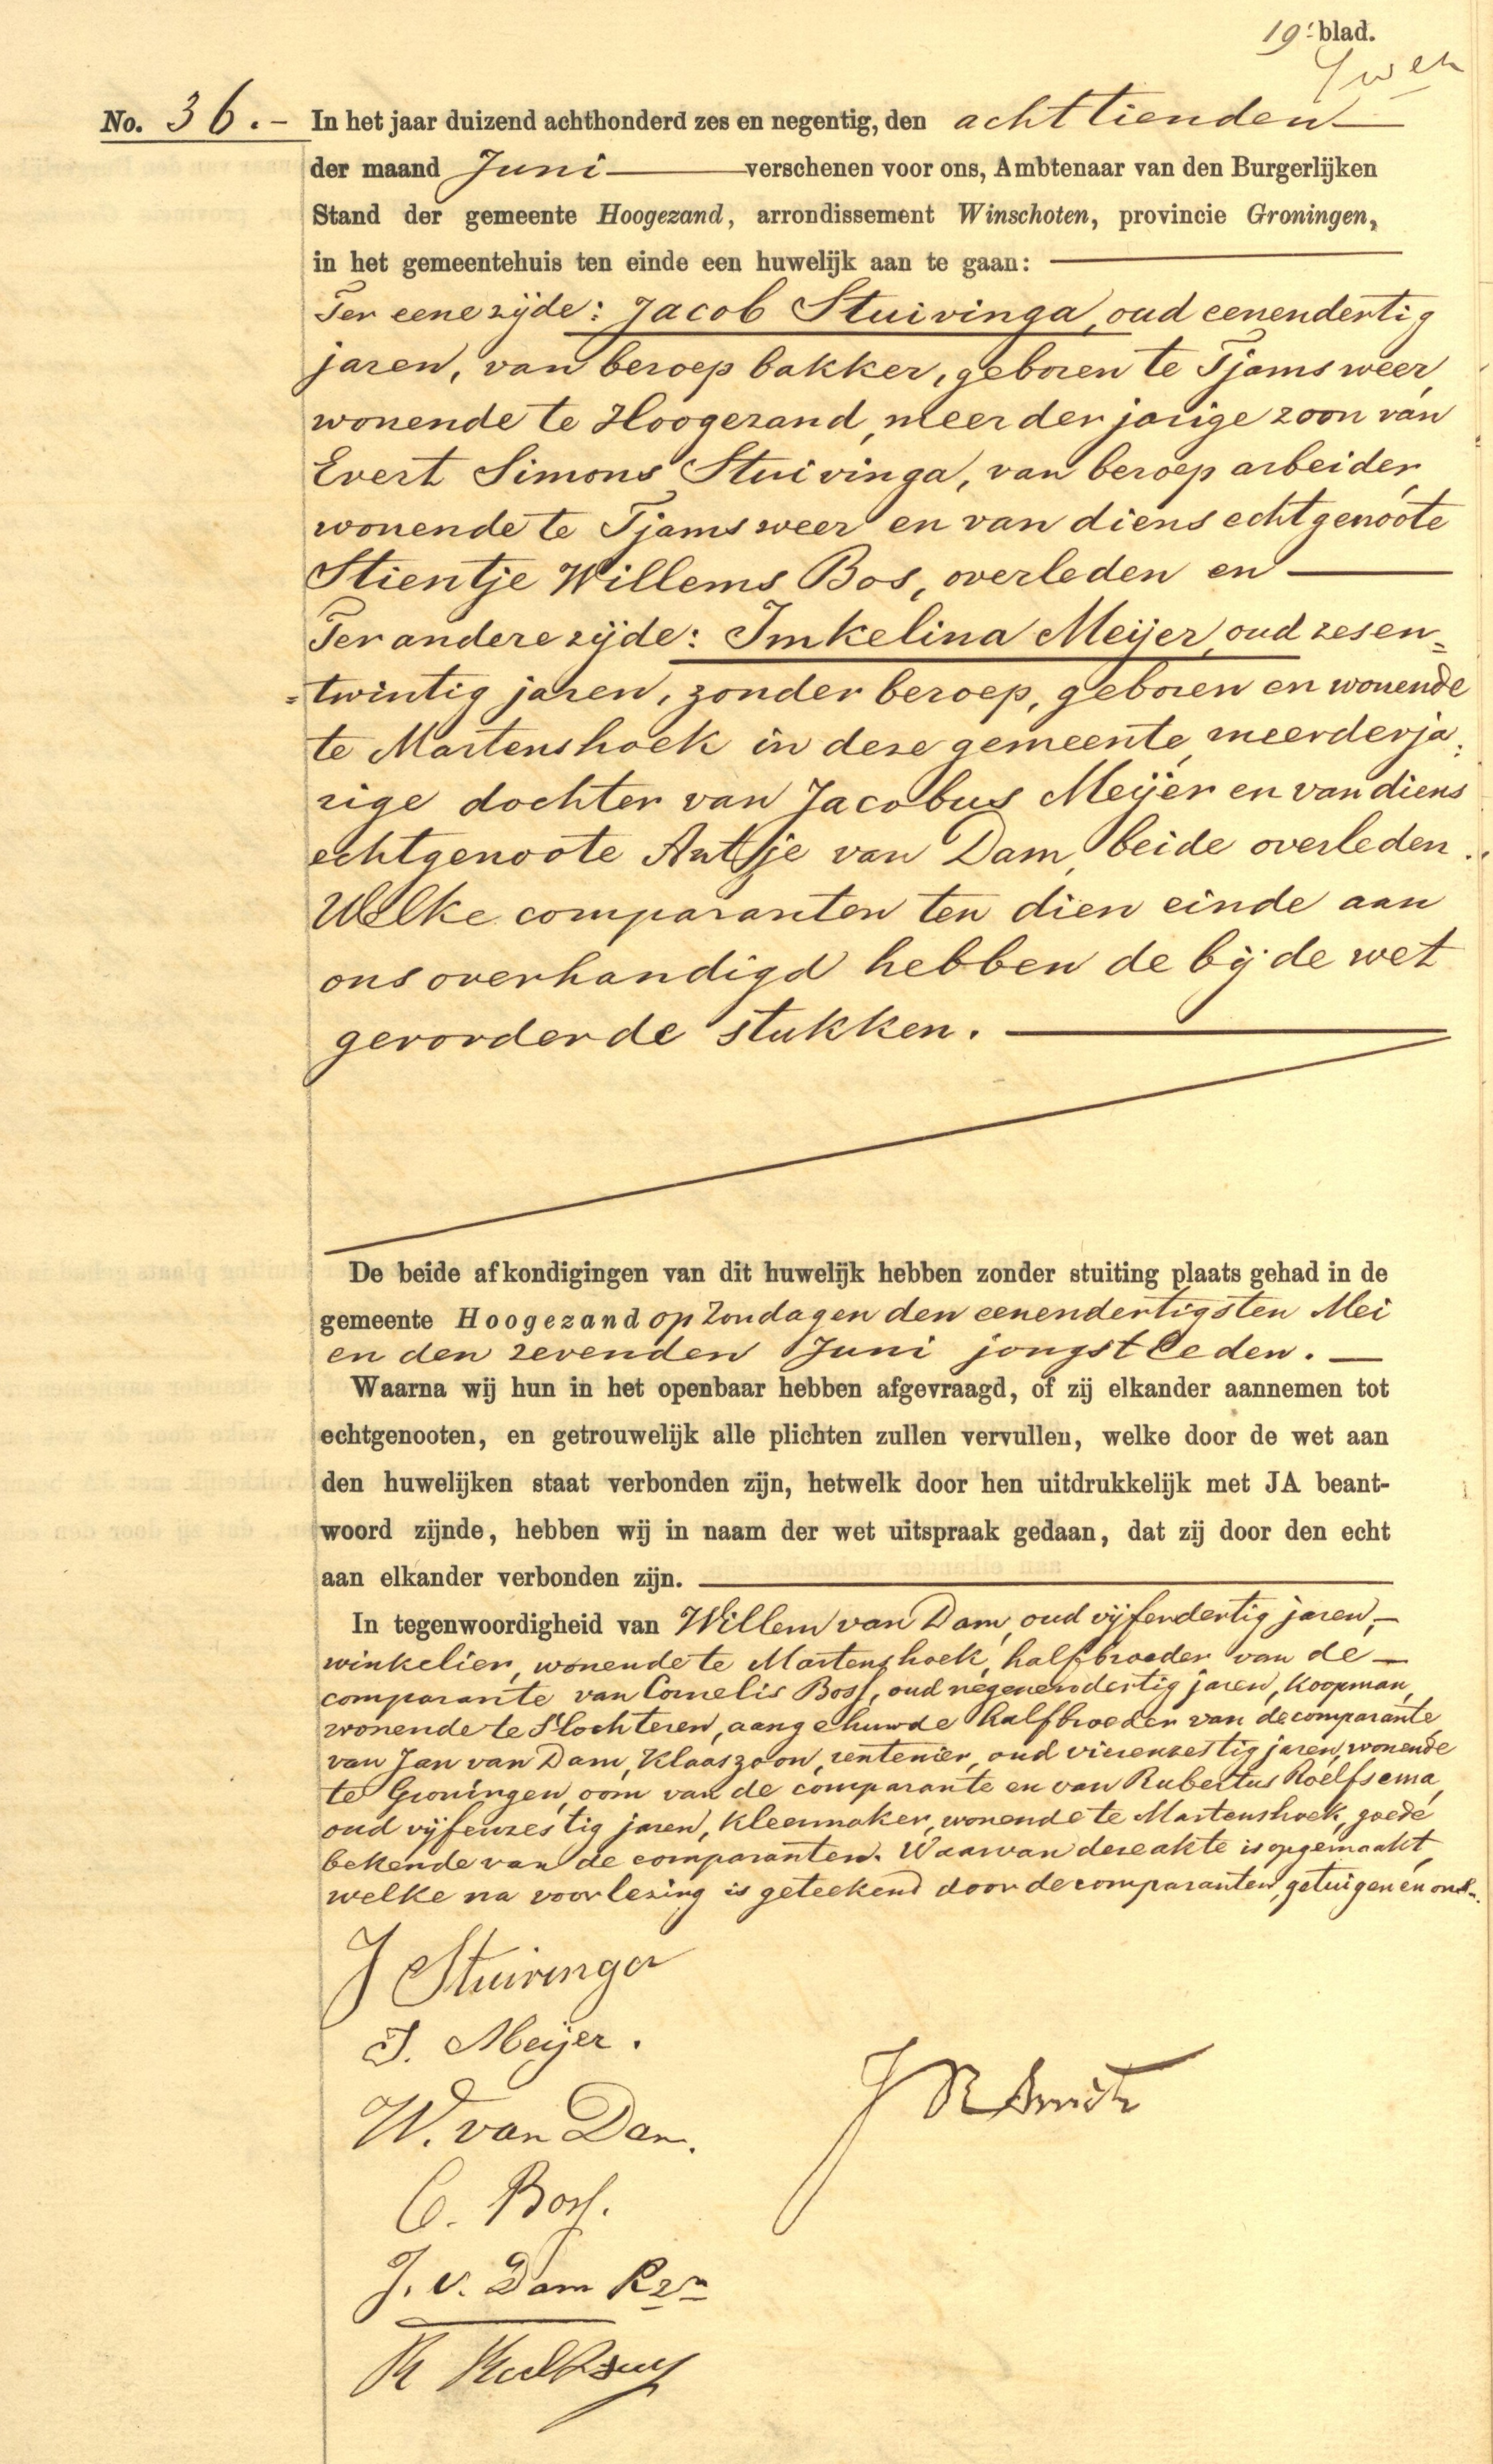 19e blad.
No. 36.- In het jaar duizend achthonderd zes en negentig, den achttienden
der maand Juni verschenen voor ons, Ambtenaar van den Burgerlijken
Stand der gemeente Hoogezand, arrondissement Winschoten, provincie Groningen,
in het gemeentehuis ten einde een huwelijk aan te gaan:
Ter eene zijde: Jacob Stuivinga, oud eenendertig
jaren, van beroep bakker, geboren te Tjamsweer,
wonende te Hoogezand, meerderjarige zoon van
Evert Simons Stuivinga, van beroep arbeider,
wonende te Tjamsweer en van diens echtgenoote
Stientje Willems Bos, overleden en
Ter andere zijde: Imkelina Meijer, oud zesen=
=twintig jaren, zonder beroep, geboren en wonende
te Martenshoek in deze gemeente, meerderja:
rige dochter van Jacobus Meijer en van diens
echtgenoote Antje van Dam, beide overleden.
Welke comparanten ten dien einde aan
ons overhandigd hebben de bij de wet
gevorderde stukken.
De beide afkondigingen van dit huwelijk hebben zonder stuiting plaats gehad in de
gemeente Hoogezand op Zondagen den eenendertigsten Mei
en den zevenden Juni jongstleden.
Waarna wij hun in het openbaar hebben afgevraagd, of zij elkander aannemen tot
echtgenooten, en getrouwelijk alle plichten zullen vervullen, welke door de wet aan
den huwelijken staat verbonden zijn, hetwelk door hen uitdrukkelijk met JA beant-
woord zijnde, hebben wij in naam der wet uitspraak gedaan, dat zij door den echt
aan elkander verbonden zijn.
In tegenwoordigheid van Willem van Dam, oud vijfendertig jaren,
winkelier, wonende te Martenshoek, halfbroeder van de
comparante van Cornelis Boss, oud negenendertig jaren, Koopman,
wonende te Slochteren, aangehuwde halfbroeder van de comparante,
van Jan van Dam, Klaaszoon, rentenier, oud vierenzestig jaren, wonende
te Groningen, oom van de comparante en van Rubertus Roelfsema,
oud vijfenzestig jaren, kleermaker, wonende te Martenshoek, goede
bekende van de comparanten. Waarvan deze akte is opgemaakt,
welke na voorlezing is geteekend door de comparanten, getuigen en ons.
J Stuivinga
I. Meijer.
W. van Dam.
C. Boss.
J. v. Dam Kzn